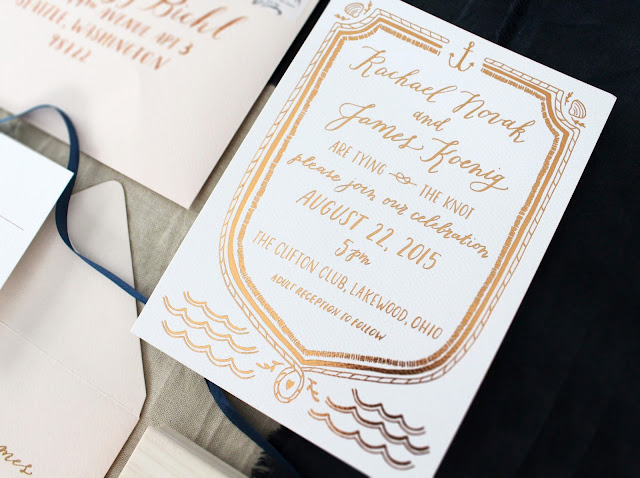 Biehl
AVENUE APT 3
SEATTLE, WASHINGTON
98122
Rachael Novak
and
James Koenig
ARE TYING THE KNOT
please join our celebration
AUGUST 22, 2015
5pm
THE CLIFTON CLUB, LAKEWOOD, OHIO
ADULT RECEPTION TO FOLLOW